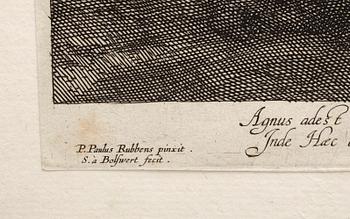 Agnus adest
Inde Hæc
P. Paulus Rubbens pinxit.
S. à Bolswert fecit.